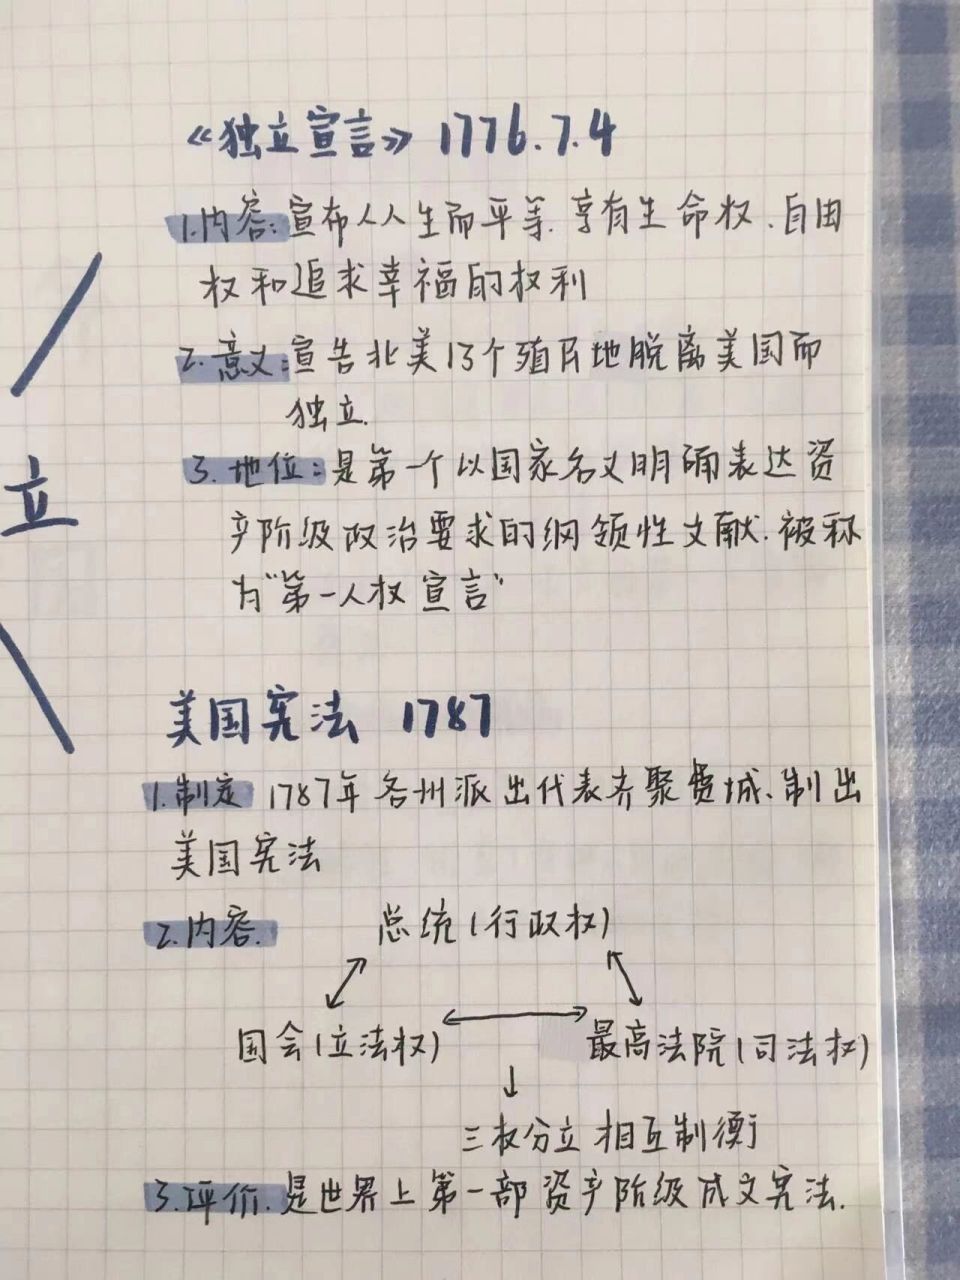 《独立宣言》 1776.7.4
1.内容:宣布人人生而平等.享有生命权、自由
权和追求幸福的权利
2.意义:宣告北美13个殖民地脱离美国而
独立.
立
3.地位:是第一个以国家名义明确表达资
产阶级政治要求的纲领性文献.被称
为"第一人权宣言"
美国宪法 1787
1.制定 1787年各州派出代表齐聚费城、制出
美国宪法
2.内容. 总统(行政权)
国会(立法权) 最高法院(司法权)
三权分立 相互制衡
3.评价.是世界上第一部资产阶级成文宪法.